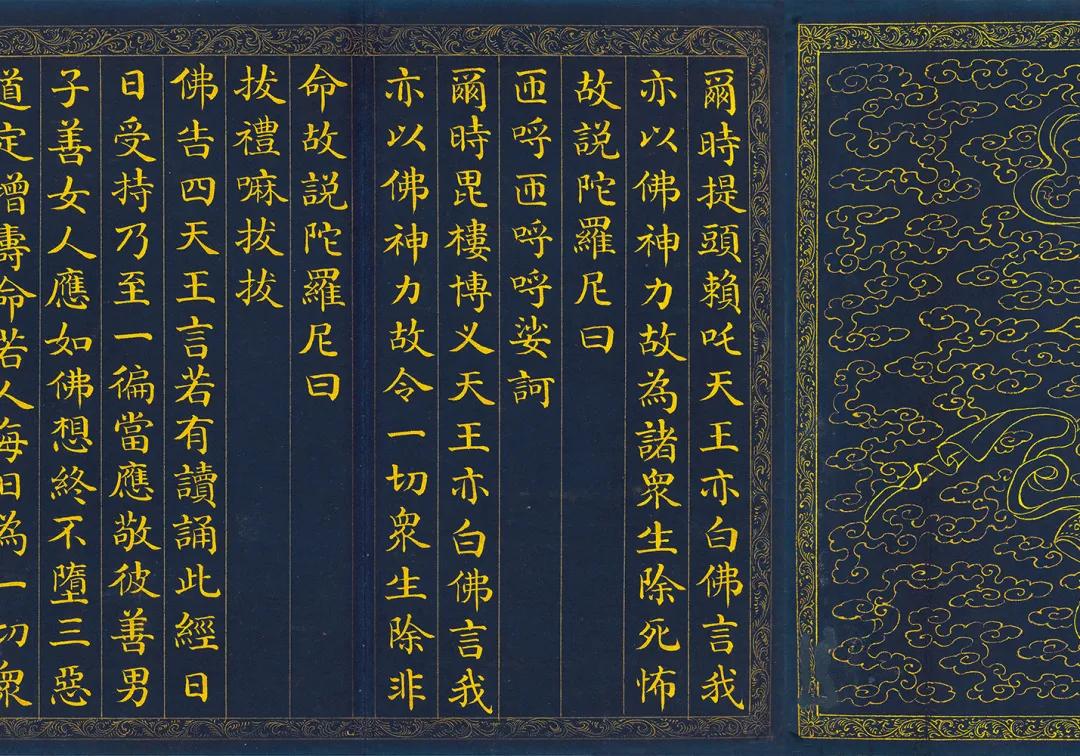 爾時提頭賴吒天王亦白佛言我
亦以佛神力故為諸衆生除死怖
故説陀羅尼曰
咂呼咂呼呼娑訶
爾時毘樓博义天王亦白佛言我
亦以佛神力故令一切衆生除非
命故説陀羅尼曰
拔禮嘛拔拔
佛告四天王言若有讀誦此經日
日受持乃至一徧當應敬彼善男
子善女人應如佛想終不墮三惡
道定增壽命若人每日為一切衆